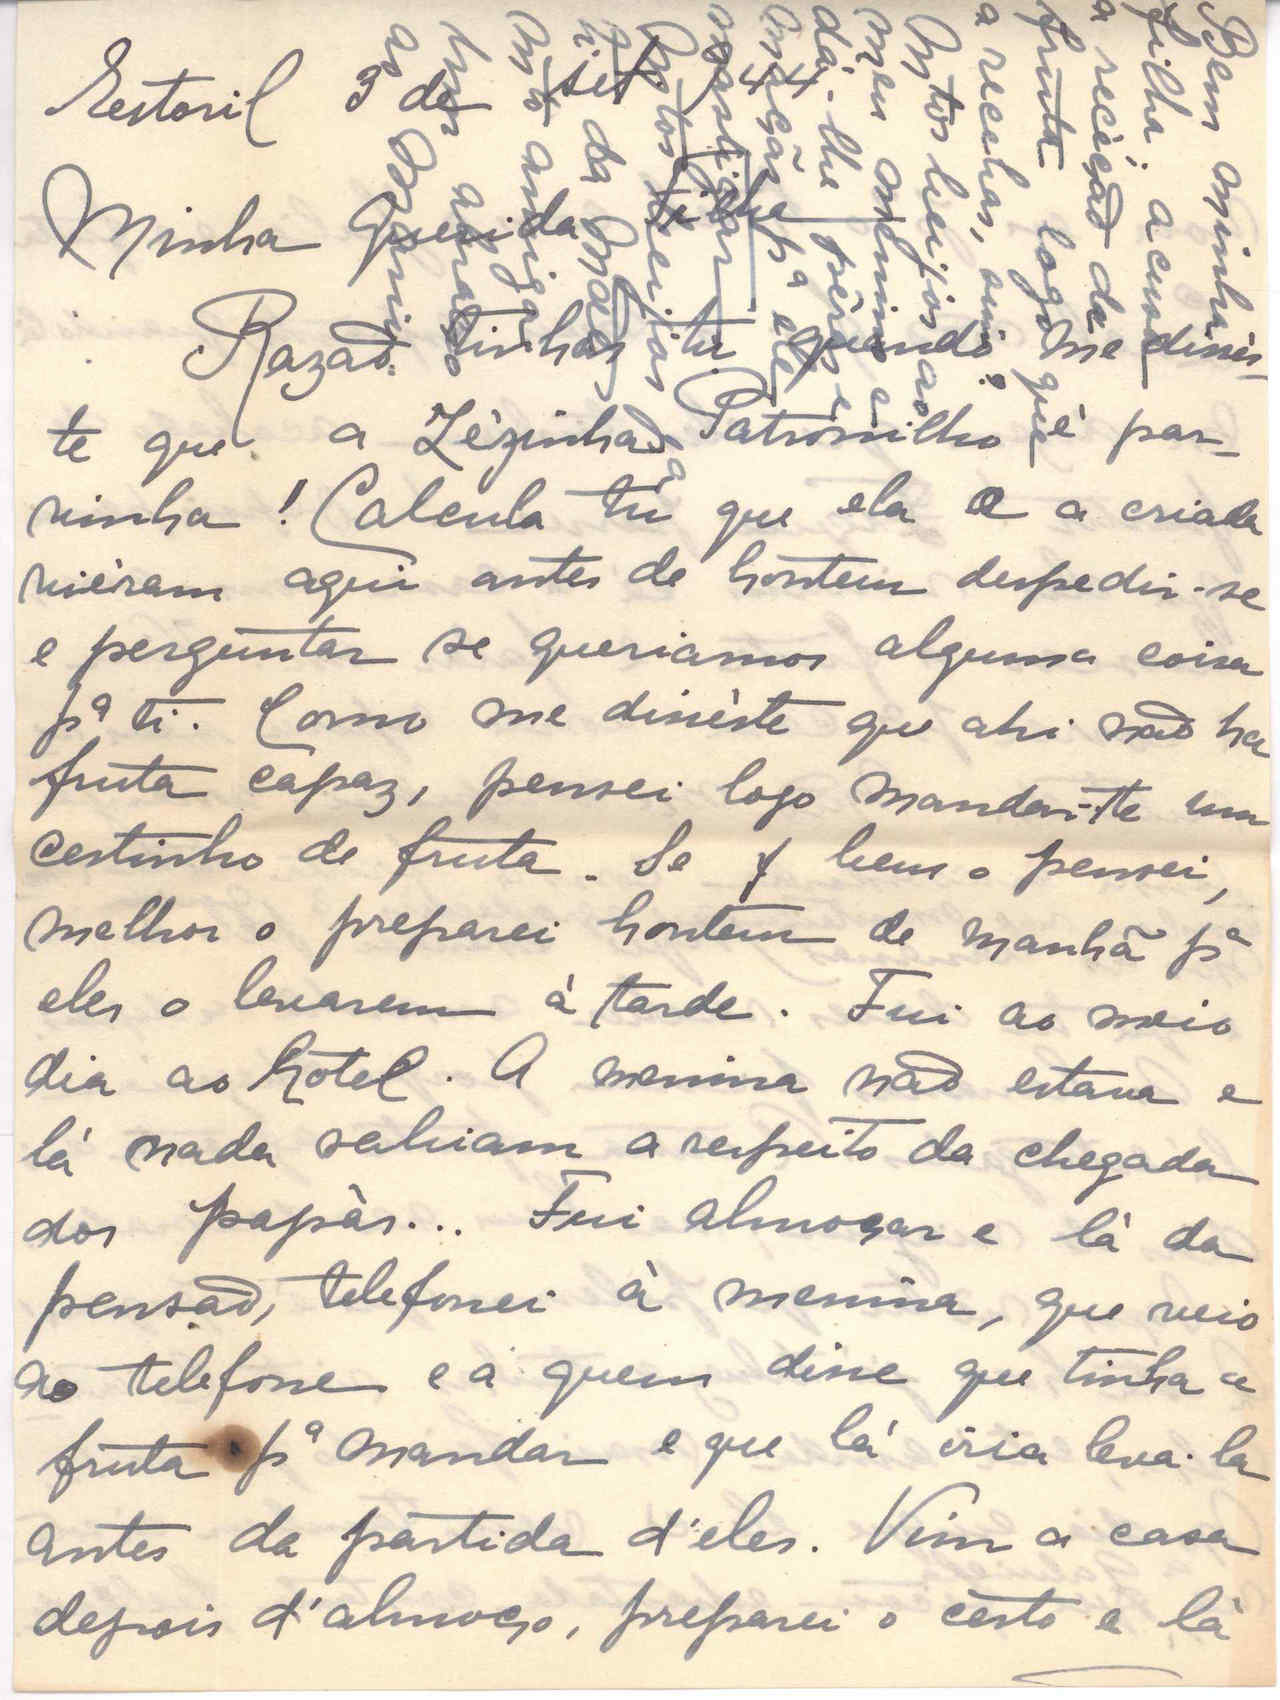 Estoril 3 de set 944
Minha Querida Filha
Razaõ tinhas tu quando me dissés-
te que a Zèzinha Patronilho é par-
vinha! Calcula tu que ela e a criada
viéram aqui antes de hontem despedir-se
e perguntar se queriamos alguma coisa
pª ti. Como me dissèste que ahi naõ ha
fruta capaz, pensei logo mandar-te um
cestinho de fruta. Se bem o pensei,
melhor o preparei hontem de manhã pª
eles o levarem à tarde. Fui ao meio
dia ao hotel. A menina naõ estava e
lá nada sabiam a respeito da chegada
dos papàs... Fui almoçar e lá da
pensaõ, telefonei à menina, que veio
ao telefone e a quem disse que tinha a
fruta pª mandar e que lá iria leva-la
antes da partida d'eles. Vim a casa
depois d'almoço, preparei o cesto e lá
Bem minha
filha acusa
a recéçaõ da
fruta logo que
a recebas, sim?
Mtos beijos ao
meu menino e
dá-lhe sèrpe e
pª ele
Mtos beijos
da Mãe
mto amiga